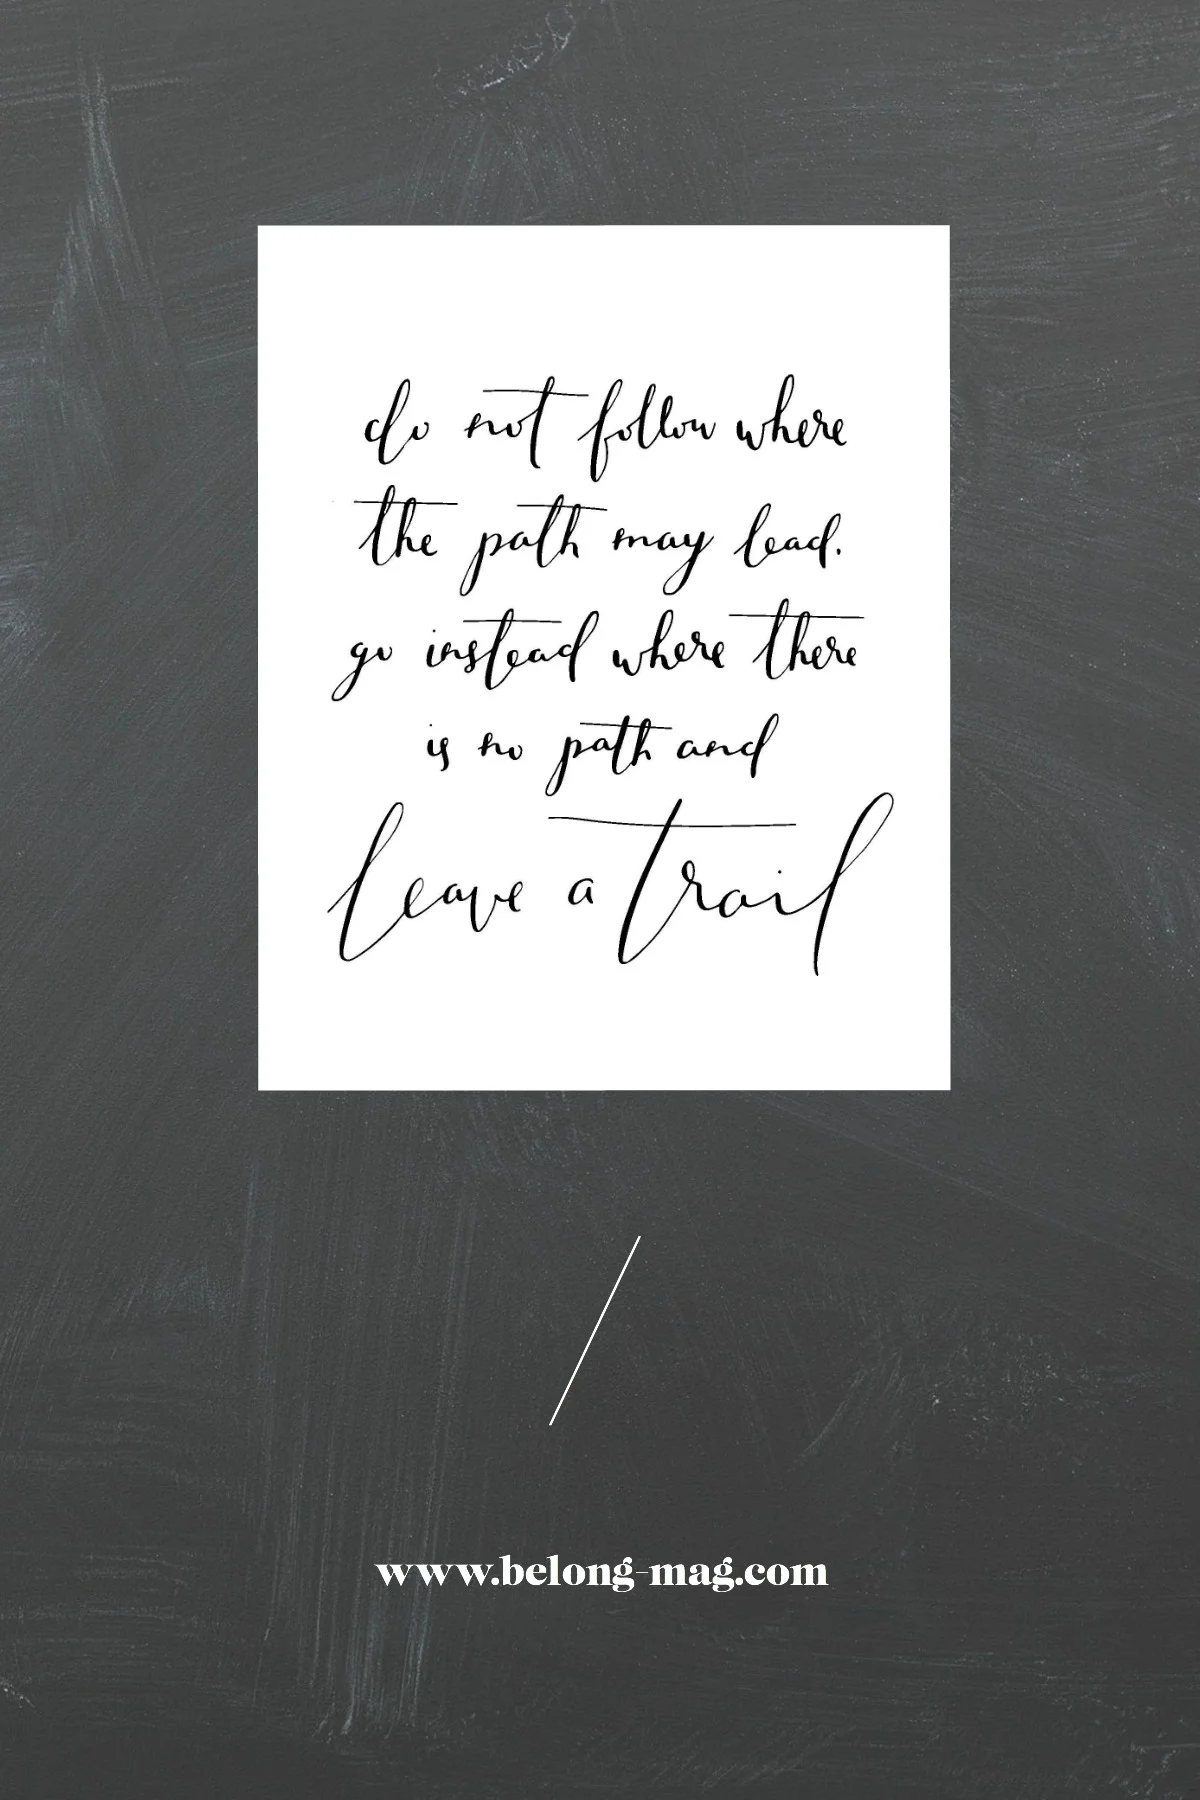 do not follow where
the path may lead.
go instead where there
is no path and
leave a trail
www.belong-mag.com